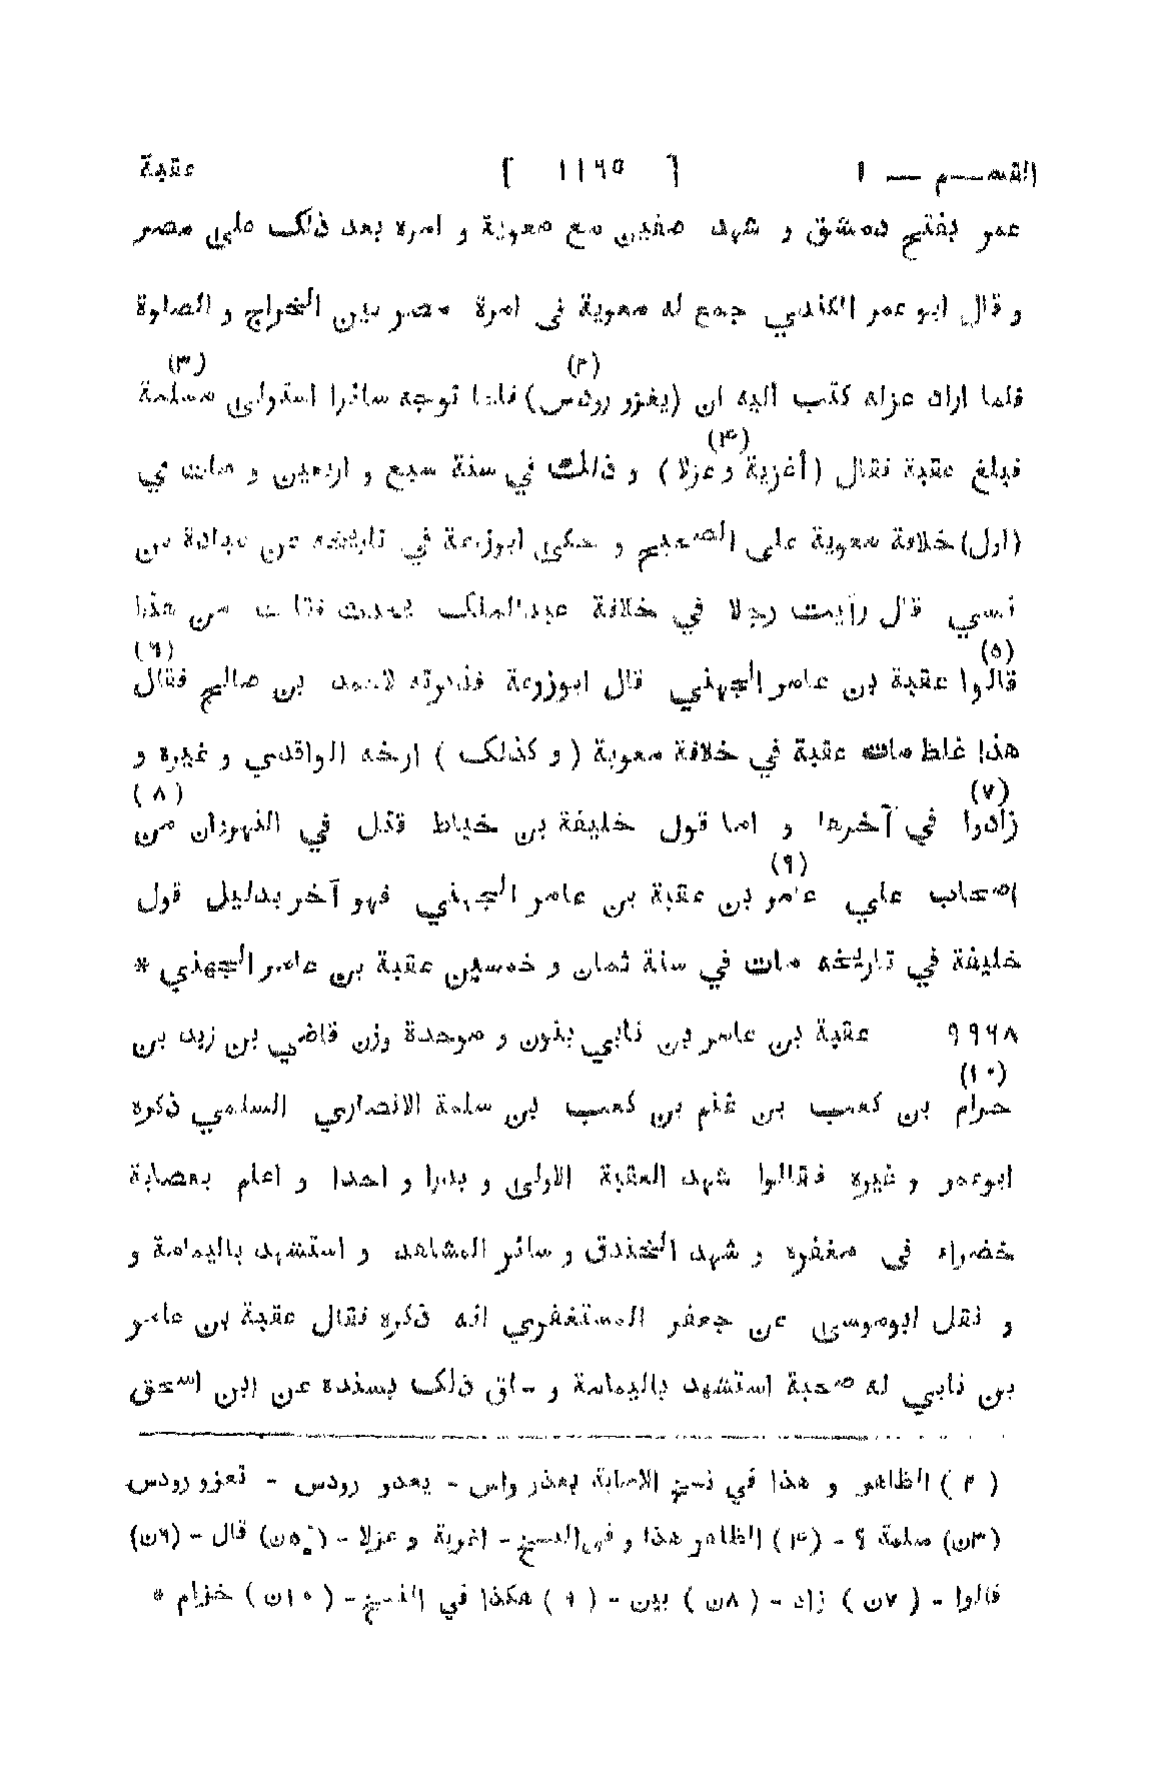 القسم — ١ [ ١١٦٥ ] عقبة
عمر بفتح دمشق و شهد صفين مع معوية و امره بعد ذلك على مصر
و قال ابو عمر الكندي جمع له معوية فى امرة مصر بين الخراج و الصلوة
فلما اراد عزله كتب اليه ان (يغزو رودس)(٢) فلما توجه سائرا استولى مسلمة(٣)
فبلغ عقبة فقال (أغزية وعزلا)(٤) و ذلك في سنة سبع و اربعين و مات في
(اول) خلافة معوية على الصحيح و حكى ابوزرعة في تاريخه عن عبادة بن
نسي قال رأيت رجلا في خلافة عبدالملك يحدث فقلت من هذا
قالوا(٥) عقبة بن عامر الجهني قال ابوزرعة فذكرته لاحمد بن صالح فقال(٦)
هذا غلط مات عقبة في خلافة معوية ( و كذلك ) ارخه الواقدي و غيره و
زادوا(٧) في آخرها و اما قول خليفة بن خياط قتل في النهروان من(٨)
اصحاب علي عامر(٩) بن عقبة بن عامر الجهني فهو آخر بدليل قول
خليفة في تاريخه مات في سنة ثمان و خمسين عقبة بن عامر الجهني *
٩٩٦٨ عقبة بن عامر بن نابي بنون و موحدة وزن قاضي بن زيد بن
حرام(١٠) بن كعب بن غنم بن كعب بن سلمة الانصاري السلمي ذكره
ابوعمر و غيره فقالوا شهد العقبة الاولى و بدرا و احدا و اعلم بعصابة
خضراء فى مغفره و شهد الخندق و سائر المشاهد و استشهد باليمامة و
و نقل ابوموسى عن جعفر المستغفري انه ذكره فقال عقبة بن عامر
بن نابي له صحبة استشهد باليمامة و ساق ذلك بسنده عن ابن اسحق
( ٢ ) الظاهر و هذا في نسخ الاصابة بعذر واس - يعدو رودس - تعزو رودس
(٣ن) سلمة ؟ - (٤) الظاهر هذا و فى النسخ - اغربة و عزلا - (٥ن) قال - (٦ن)
قالوا - ( ٧ن ) زاد - ( ٨ن ) بين - ( ٩ ) هكذا في النسخ - ( ١٠ن ) خزام *